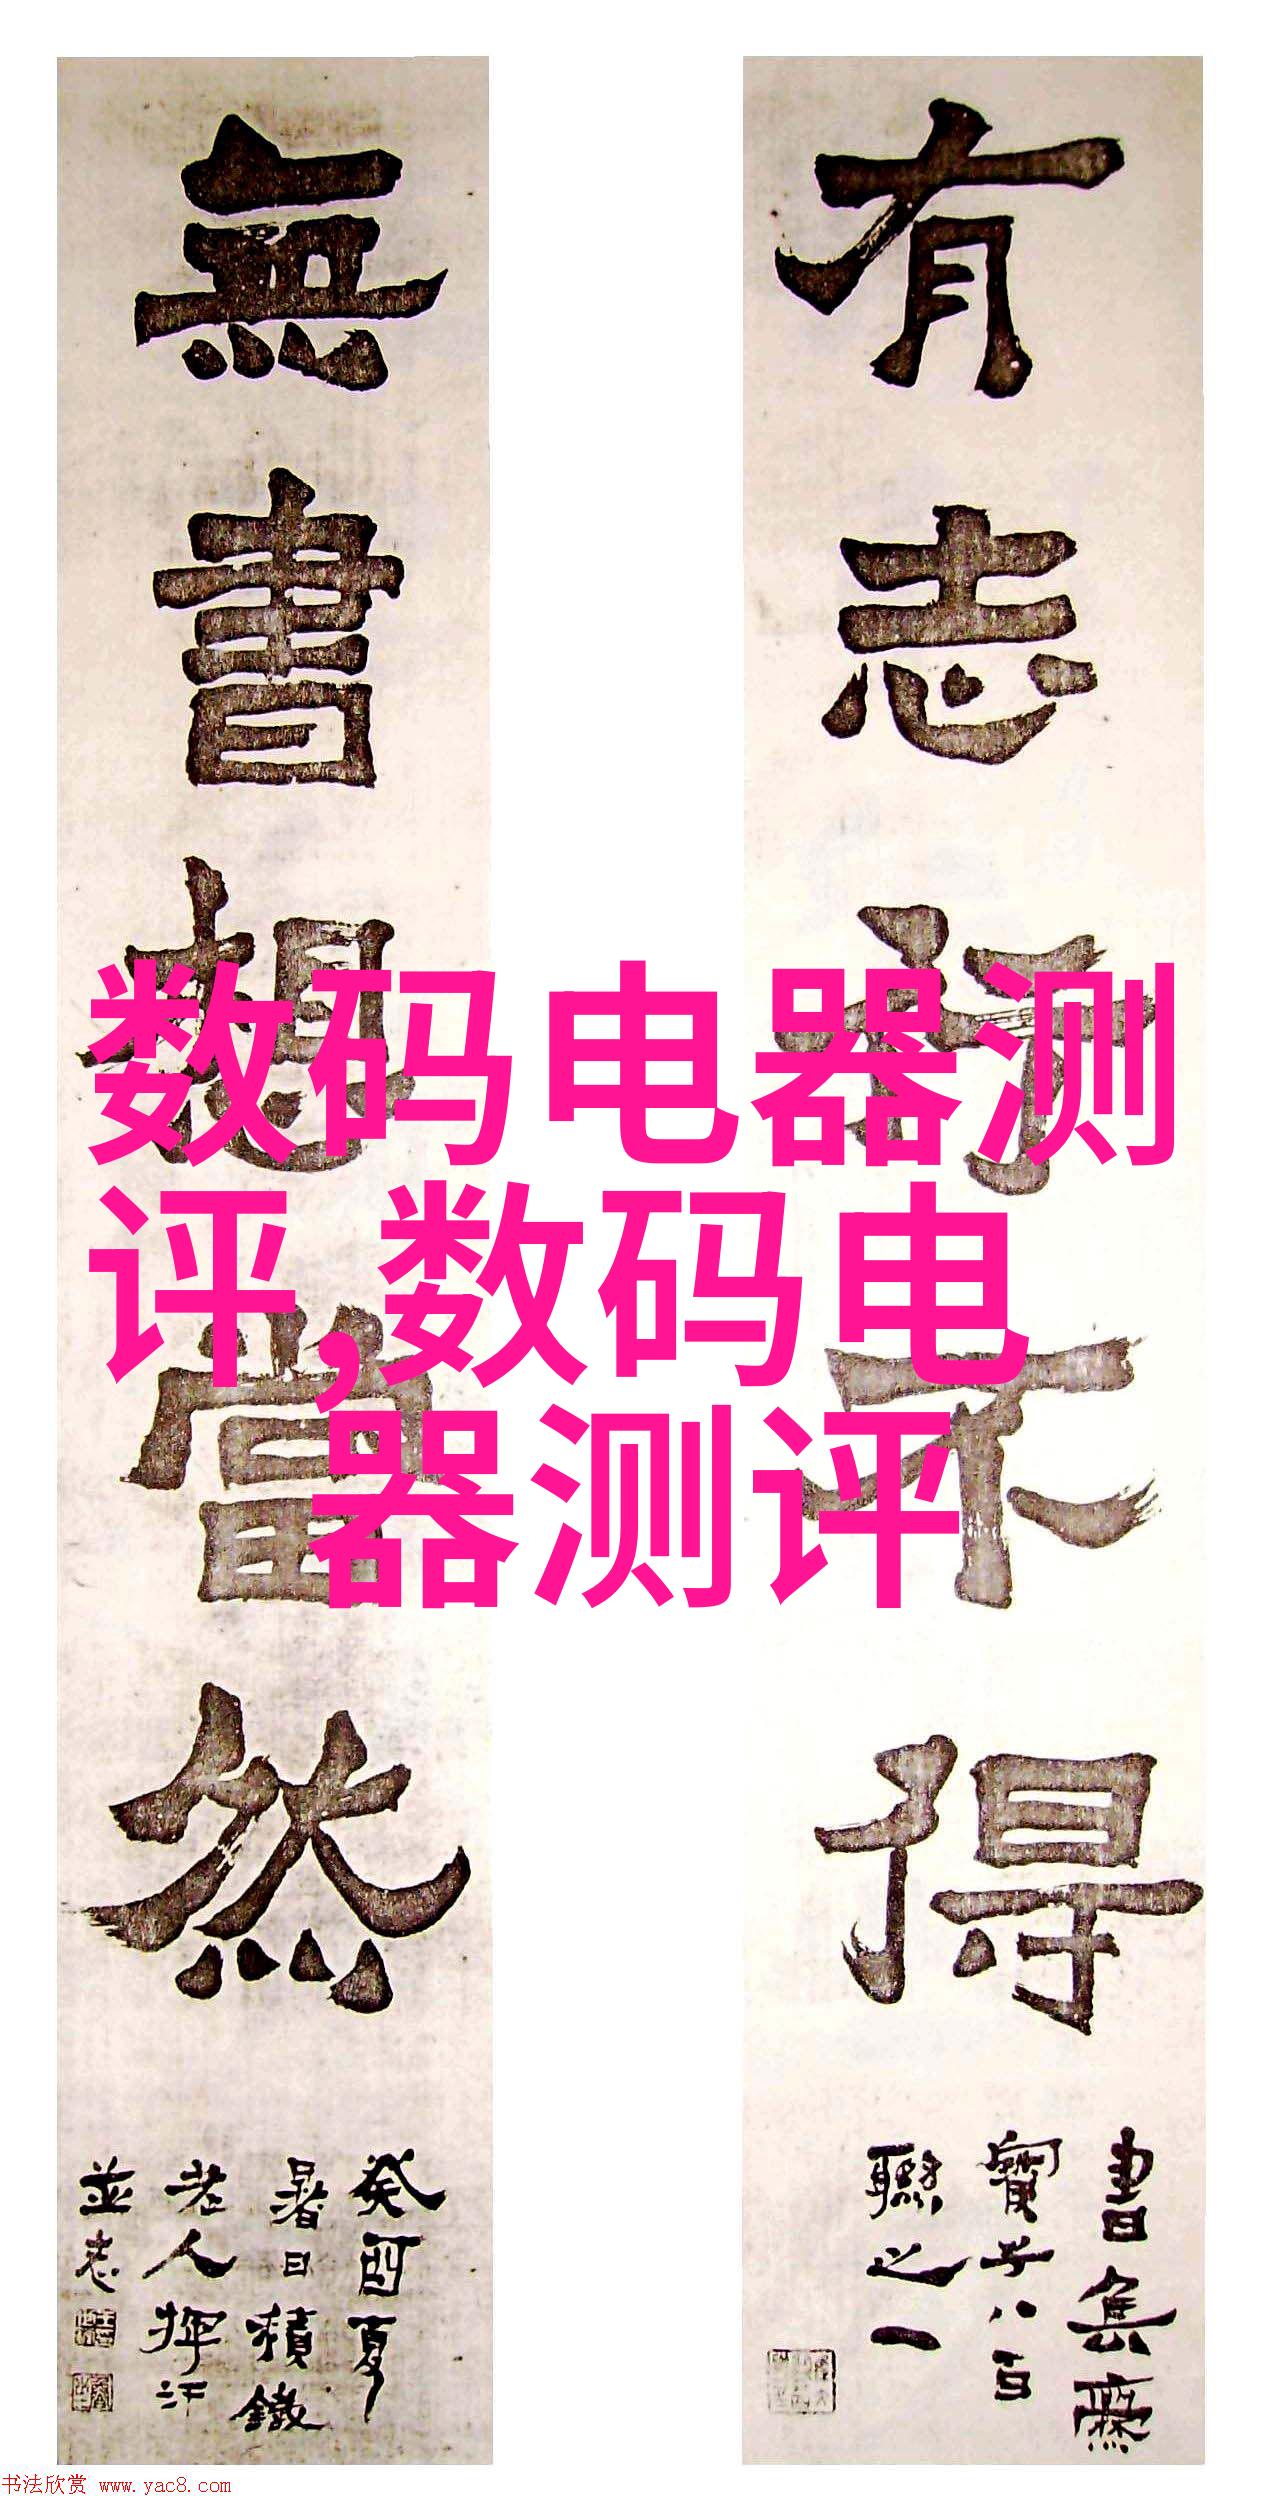 有志行不得
書集爨
寶子八百
聯之一
無書想當然
癸酉夏
暑日積鐵
老人揮汗
並志
数码电器测
评,数码电
器测评
书法欣赏 www.yac8.com